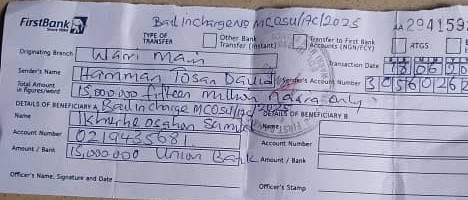 FirstBank
Since 1894
Bail in charge no MCOSU/19C/2025
AA 294159
TYPE OF TRANSFER
Other Bank Transfer (Instant)
Transfer to First Bank Accounts (NGN/FCY)
RTGS
Originating Branch Warri Main
Transaction Date
Sender's Name Hamman Tosan David
Sender's Account Number 30560262
Total Amount in figures/word 15,000,000 fifteen million naira only
DETAILS OF BENEFICIARY A Bail in charge MCOSU/19C/2025
DETAILS OF BENEFICIARY B
Name Ikhurhe osahon
Name
Account Number 0219435681
Account Number
Amount / Bank 15,000,000 Union Bank
Amount / Bank
Officer's Name, Signature and Date
Officer's Stamp